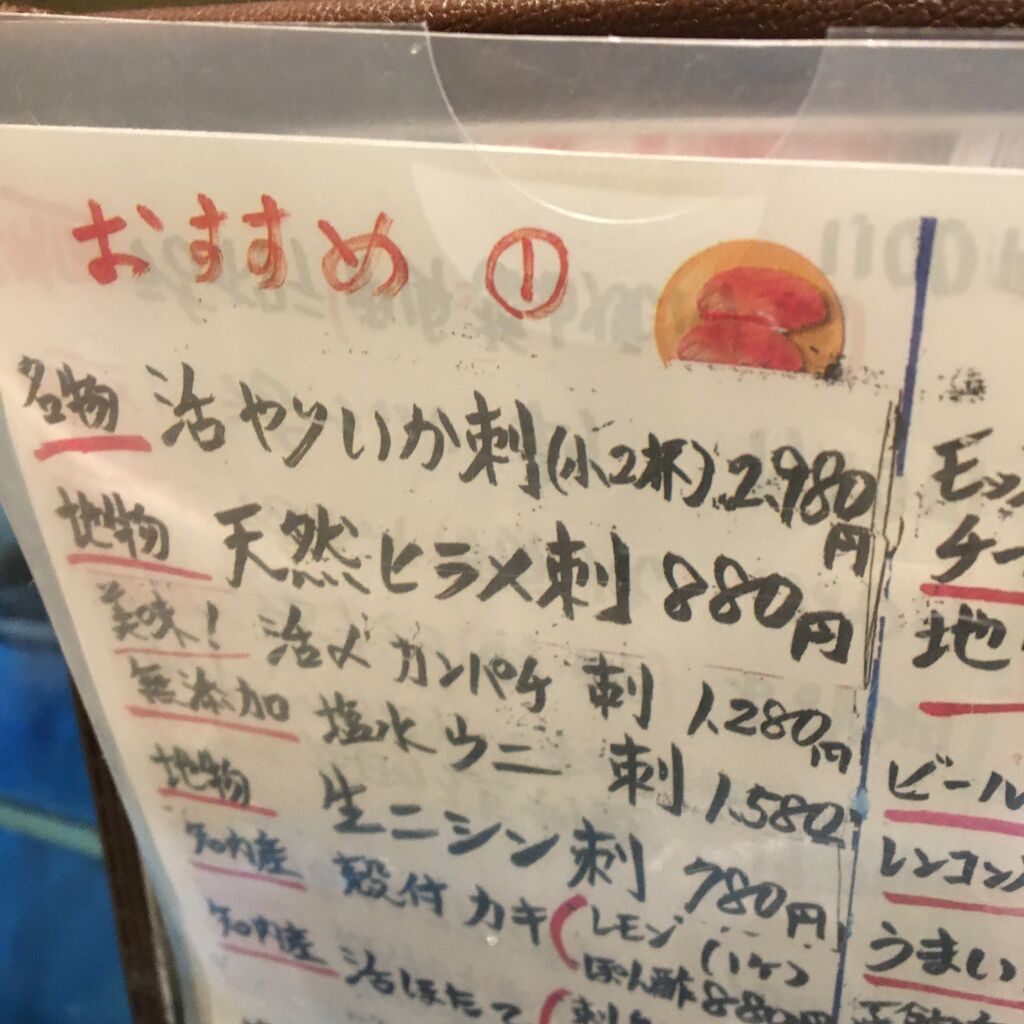 おすすめ ①
名物 活やりいか刺(小2杯)2,980円
地物 天然ヒラメ刺 880円
美味! 活〆カンパチ 刺 1,280円
無添加 塩水ウニ 刺 1,580
地物 生ニシン刺 780円
知内産 殻付カキ レモン (1ケ)
ぽん酢 880円
知内産 活ほたて 刺
モッ
チー
地
ビール
レンコン
うまい